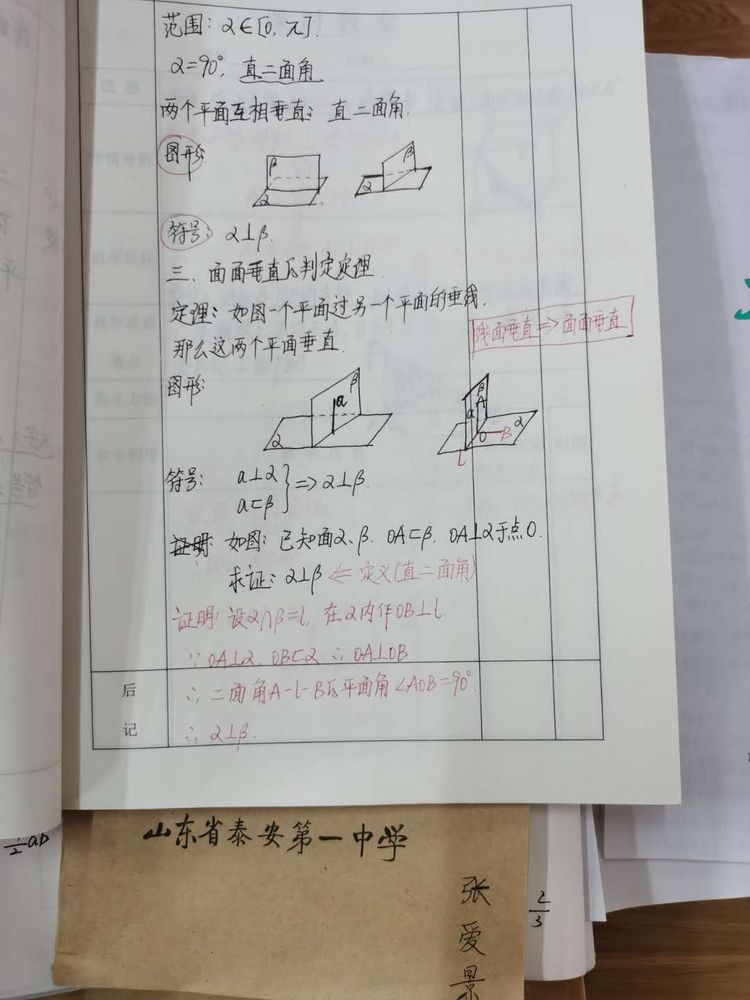 范围: α∈[0, π].
α=90°, 直二面角
两个平面互相垂直: 直二面角.
图形:
β
α
β
α
符号: α⊥β.
三、面面垂直的判定定理.
定理: 如图一个平面过另一个平面的垂线,
那么这两个平面垂直.
线面垂直 => 面面垂直
图形:
β
a
α
β
A
a
α
O
B
l
符号: a⊥α
a⊂β
} => α⊥β.
证明: 如图: 已知面α、β. OA⊂β. OA⊥α于点O.
求证: α⊥β <= 定义(直二面角)
证明: 设α∩β=l, 在α内作OB⊥l.
∵ OA⊥α, OB⊂α ∴ OA⊥OB
∴ 二面角A-l-B的平面角∠AOB=90°
∴ α⊥β.
后
记
山东省泰安第一中学
张
爱
景
2/3